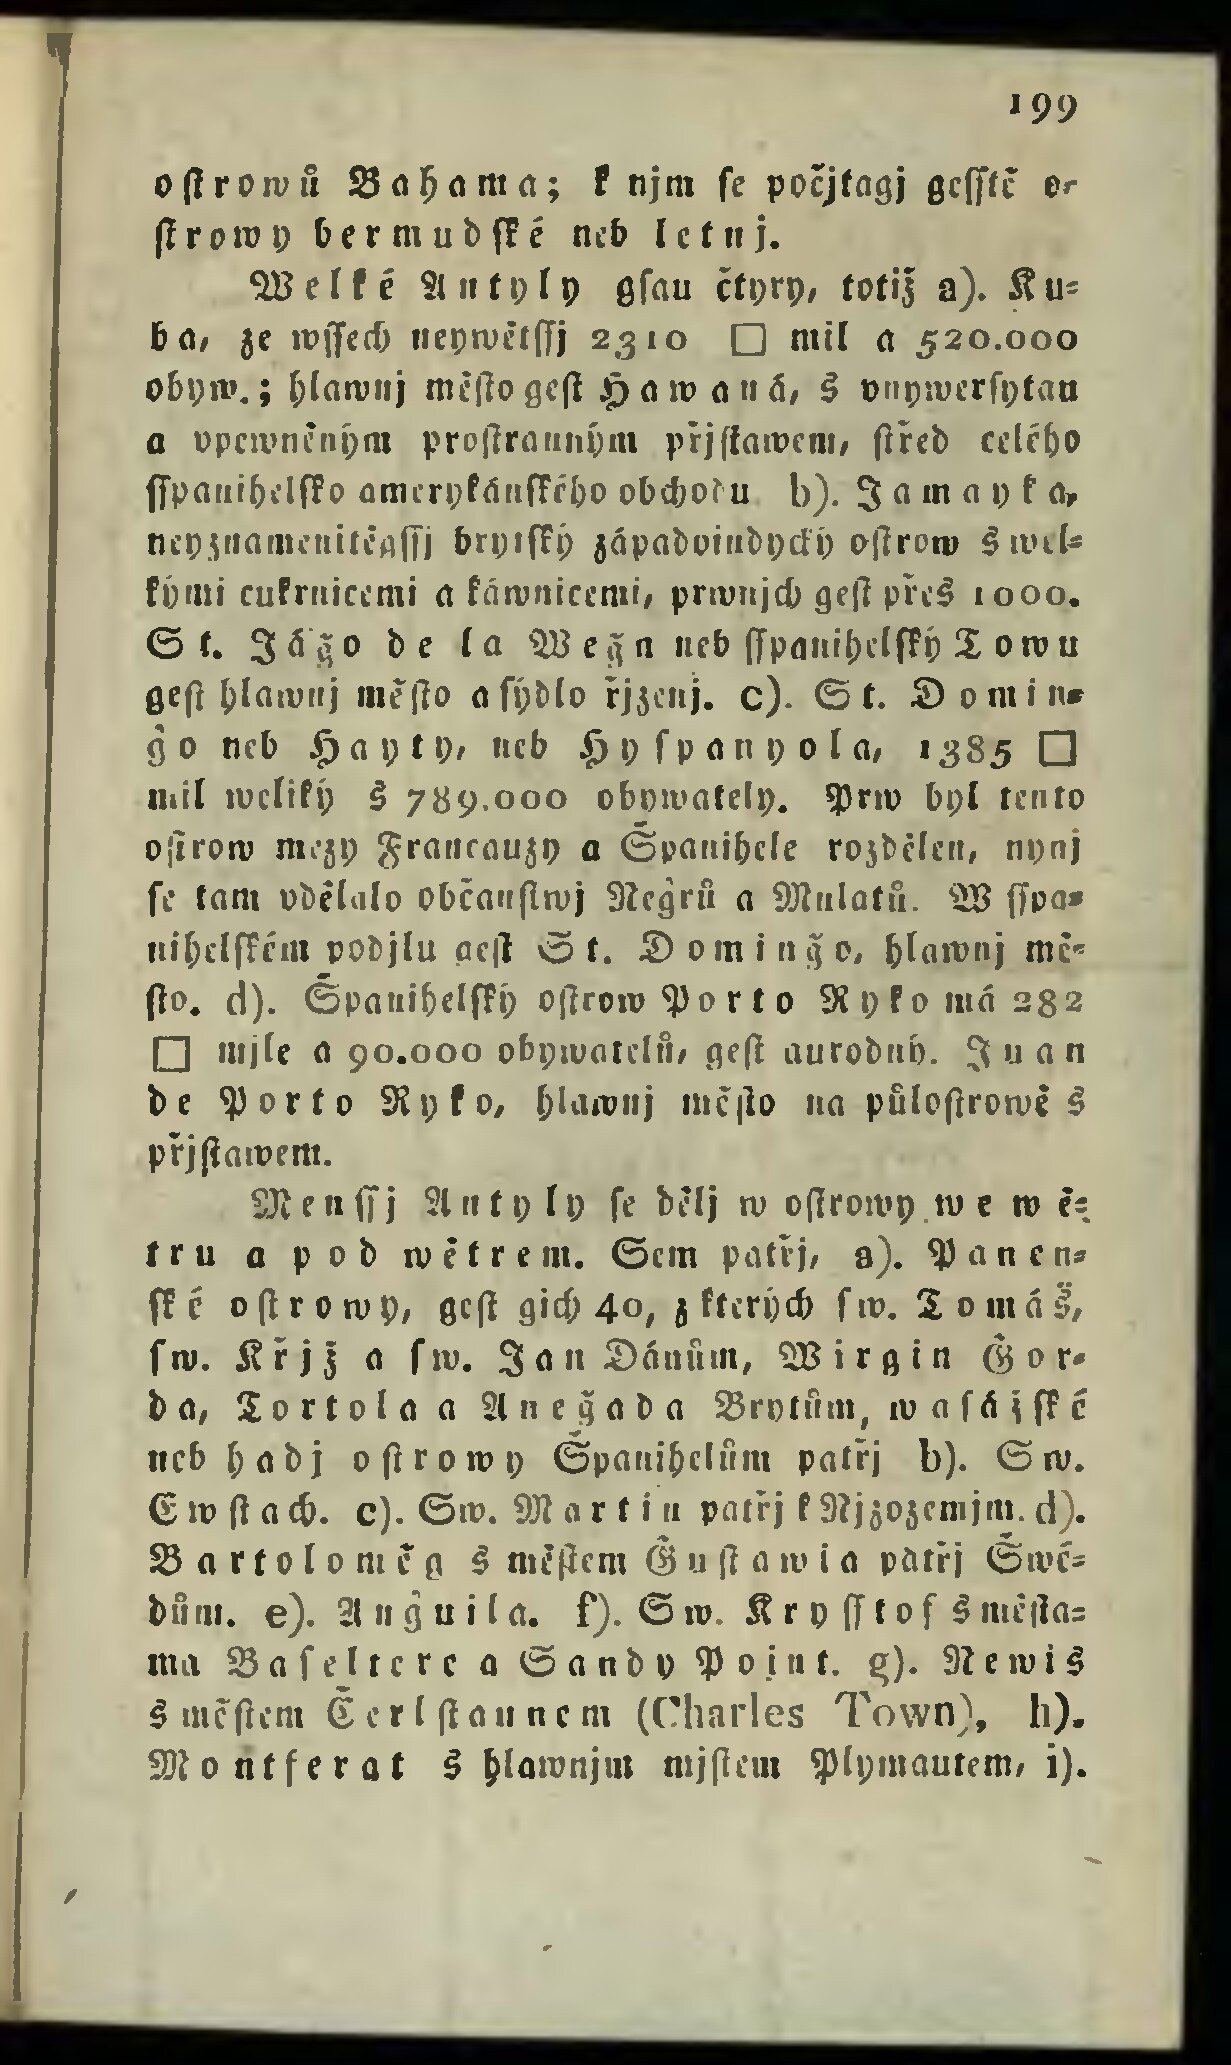 199
oſtrowů Bahama; k njm ſe počjtagj geſſtě o-
ſtrowy bermudſké neb letnj.
Welké Antyly gſau čtyry, totiž a). Ku-
ba, ze wſſech neywětſſj 2310 □ mil a 520.000
obyw.; hlawnj město geſt Hawaná, s vnywerſytau
a vpewněným proſtranným přjſtawem, střed celého
ſſpanihelſko amerykánſkého obchodu b). Jamayka,
neyznamenitěgſſj brytſký západoindycký oſtrow s wel-
kými cukrnicemi a káwnicemi, prwnjch geſt přes 1000.
St. Jáǧo de la Weǧa neb ſſpanihelſký Town
geſt hlawnj město a ſýdlo řjzenj. c). St. Domin-
ǧo neb Hayty, neb Hyſpanyola, 1385 □
mil weliký s 789.000 obywately. Prw byl tento
oſtrow mezy Francauzy a Španihele rozdělen, nynj
ſe tam vdělalo občanſtwj Neǧrů a Mulatů. W ſſpa-
nihelſkém podjlu geſt St. Dominǧo, hlawnj mě-
ſto. d). Španihelſký oſtrow Porto Ryko má 282
□ mjle a 90.000 obywatelů, geſt aurodný. Juan
de Porto Ryko, hlawnj město na půloſtrowě s
přjſtawem.
Menſſj Antyly ſe dělj w oſtrowy we wě-
tru a pod wětrem. Sem patřj, a). Panen-
ſké oſtrowy, geſt gich 40, z kterých ſw. Tomáš,
ſw. Křjž a ſw. Jan Dánům, Wirgin Ǧor-
da, Tortola a Aneǧada Brytům, waſážſké
neb hadj oſtrowy Španihelům patřj b). Sw.
Ewſtach. c). Sw. Martin patřj k Njzozemjm. d).
Bartoloměg s měſtem Ǧuſtawia patřj Šwé-
dům. e). Anǧuila. f). Sw. Kryſſtof s měſta-
ma Baſelterre a Sandy Point. g). Newis
s měſtem Čerlſtaunem (Charles Town), h).
Montferat s hlawnjm mjſtem Plymautem, i).